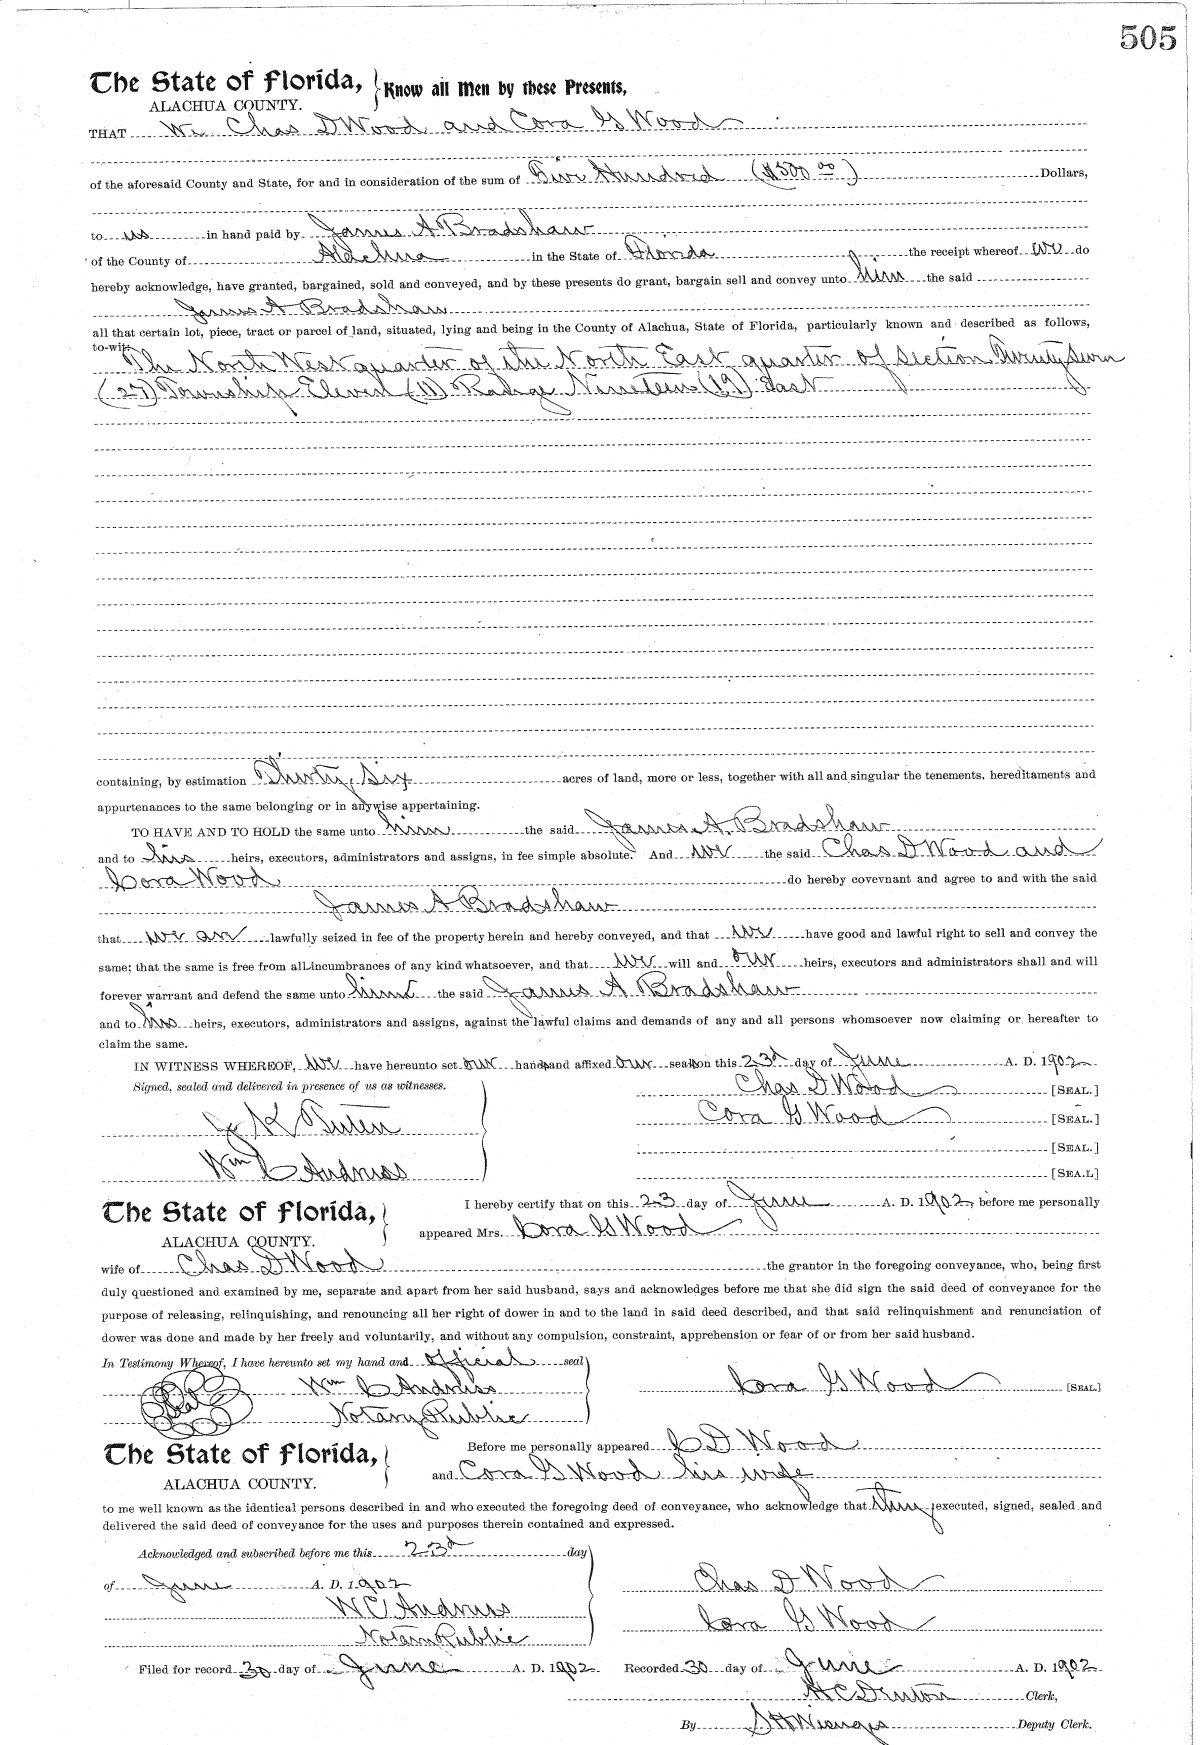 505
The State of Florida, Know all Men by these Presents,
ALACHUA COUNTY.
THAT We Chas D Wood and Cora G Wood
of the aforesaid County and State, for and in consideration of the sum of Five Hundred ($500 00) Dollars,
to us in hand paid by James A Bradshaw
of the County of Alachua in the State of Florida the receipt whereof we do
hereby acknowledge, have granted, bargained, sold and conveyed, and by these presents do grant, bargain sell and convey unto him the said
James A Bradshaw
all that certain lot, piece, tract or parcel of land, situated, lying and being in the County of Alachua, State of Florida, particularly known and described as follows,
to-wit:
The North West quarter of the North East quarter of Section Twenty Seven
(27) Township Eleven (11) Range Nineteen (19) East
containing, by estimation Thirty, Six acres of land, more or less, together with all and singular the tenements, hereditaments and
appurtenances to the same belonging or in anywise appertaining.
TO HAVE AND TO HOLD the same unto him the said James A. Bradshaw
and to his heirs, executors, administrators and assigns, in fee simple absolute. And we the said Chas D Wood and
Cora Wood do hereby covevnant and agree to and with the said
James A Bradshaw
that we are lawfully seized in fee of the property herein and hereby conveyed, and that we have good and lawful right to sell and convey the
same; that the same is free from all incumbrances of any kind whatsoever, and that we will and our heirs, executors and administrators shall and will
forever warrant and defend the same unto him the said James A Bradshaw
and to his heirs, executors, administrators and assigns, against the lawful claims and demands of any and all persons whomsoever now claiming or hereafter to
claim the same.
IN WITNESS WHEREOF, we have hereunto set our hands and affixed our seals on this 23d day of June A. D. 1902
Signed, sealed and delivered in presence of us as witnesses. Chas D Wood [SEAL.]
Cora G Wood [SEAL.]
K
[SEAL.]
Wm C Andruss [SEA.L]
The State of Florida, I hereby certify that on this 23 day of June A. D. 1902, before me personally
ALACHUA COUNTY. appeared Mrs. Cora G Wood
wife of Chas D Wood the grantor in the foregoing conveyance, who, being first
duly questioned and examined by me, separate and apart from her said husband, says and acknowledges before me that she did sign the said deed of conveyance for the
purpose of releasing, relinquishing, and renouncing all her right of dower in and to the land in said deed described, and that said relinquishment and renunciation of
dower was done and made by her freely and voluntarily, and without any compulsion, constraint, apprehension or fear of or from her said husband.
In Testimony Whereof, I have hereunto set my hand and official seal
Seal Wm C Andruss Cora G Wood [SEAL.]
Notary Public
The State of Florida, Before me personally appeared C D Wood
ALACHUA COUNTY. and Cora G Wood his wife
to me well known as the identical persons described in and who executed the foregoing deed of conveyance, who acknowledge that they executed, signed, sealed and
delivered the said deed of conveyance for the uses and purposes therein contained and expressed.
Acknowledged and subscribed before me this 23d day
of June A. D. 1902 Chas D Wood
W C Andruss Cora G Wood
Notary Public
Filed for record 30 day of June A. D. 1902 Recorded 30 day of June A. D. 1902
H C Denton Clerk,
By S H Wienges Deputy Clerk.